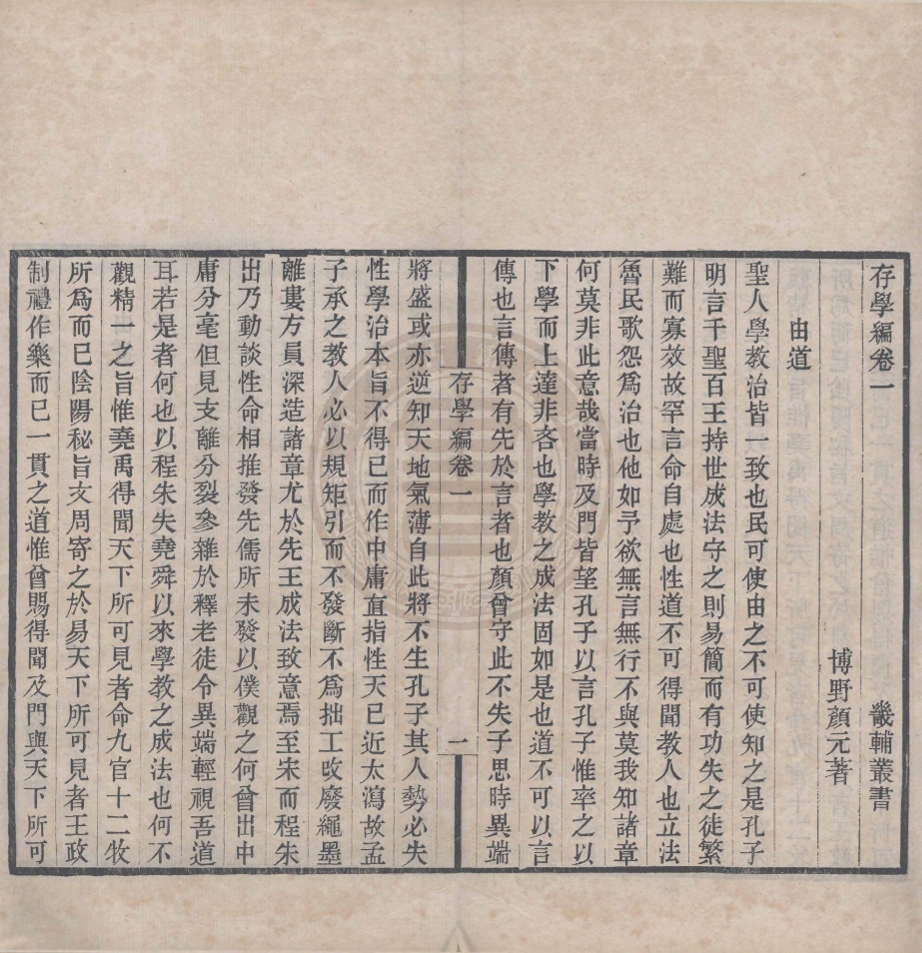 存學編卷一 畿輔叢書
博野顏元著
由道
聖人學教治皆一致也民可使由之不可使知之是孔子
明言千聖百王持世成法守之則易簡而有功失之徒繁
難而寡效故罕言命自處也性道不可得聞教人也立法
魯民歌怨爲治也他如予欲無言無行不與莫我知諸章
何莫非此意哉當時及門皆望孔子以言孔子惟率之以
下學而上達非吝也學教之成法固如是也道不可以言
傳也言傳者有先於言者也顏曾守此不失子思時異端
存學編卷一 一
將盛或亦逆知天地氣薄自此將不生孔子其人勢必失
性學治本旨不得已而作中庸直指性天已近太瀉故孟
子承之教人必以規矩引而不發斷不爲拙工攺廢繩墨
離婁方員深造諸章尤於先王成法致意焉至宋而程朱
出乃動談性命相推發先儒所未發以僕觀之何曾出中
庸分毫但見支離分裂參雜於釋老徒令異端輕視吾道
耳若是者何也以程朱失堯舜以來學教之成法也何不
觀精一之旨惟堯禹得聞天下所可見者命九官十二牧
所爲而已陰陽秘旨文周寄之於易天下所可見者王政
制禮作樂而已一貫之道惟曾賜得聞及門與天下所可